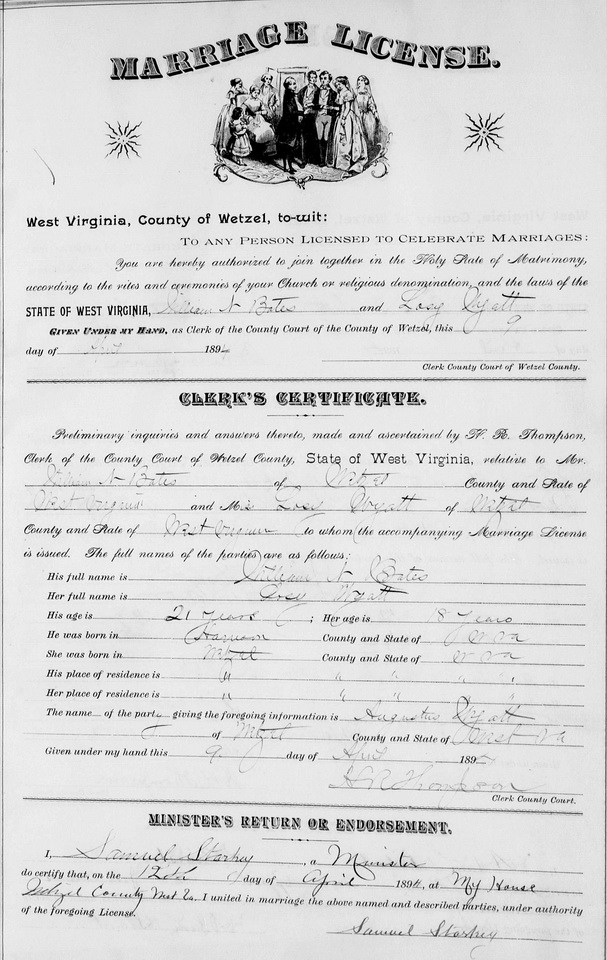 MARRIAGE LICENSE.
West Virginia, County of Wetzel, to-wit:
TO ANY PERSON LICENSED TO CELEBRATE MARRIAGES:
You are hereby authorized to join together in the Holy State of Matrimony,
according to the rites and ceremonies of your Church or religious denomination, and the laws of the
STATE OF WEST VIRGINIA, William N Bates and Losy Wyatt
GIVEN UNDER MY HAND, as Clerk of the County Court of the County of Wetzel, this 9
day of Apl 1894
Clerk County Court of Wetzel County.
CLERK'S CERTIFICATE.
Preliminary inquiries and answers thereto, made and ascertained by H. R. Thompson,
Clerk of the County Court of Wetzel County, State of West Virginia, relative to Mr.
William N Bates of Wetzel County and State of
West Virginia and Mis Losy Wyatt of Wetzel
County and State of West Virginia to whom the accompanying Marriage License
is issued. The full names of the parties are as follows:
His full name is William N Bates
Her full name is Losy Wyatt
His age is 21 years ; Her age is 18 years
He was born in Harrison County and State of W Va
She was born in Wetzel County and State of W Va
His place of residence is " " " " "
Her place of residence is " " " "
The name of the party giving the foregoing information is Augustus Wyatt
of Wetzel County and State of West Va
Given under my hand this 9 day of Apl 189
H R Thompson
Clerk County Court.
MINISTER'S RETURN OR ENDORSEMENT.
I, Samuel Starkey, a Minister
do certify that, on the 12th day of April 1894, at My House
Wetzel County West Va. I united in marriage the above named and described parties, under authority
of the foregoing License.
Samuel Starkey